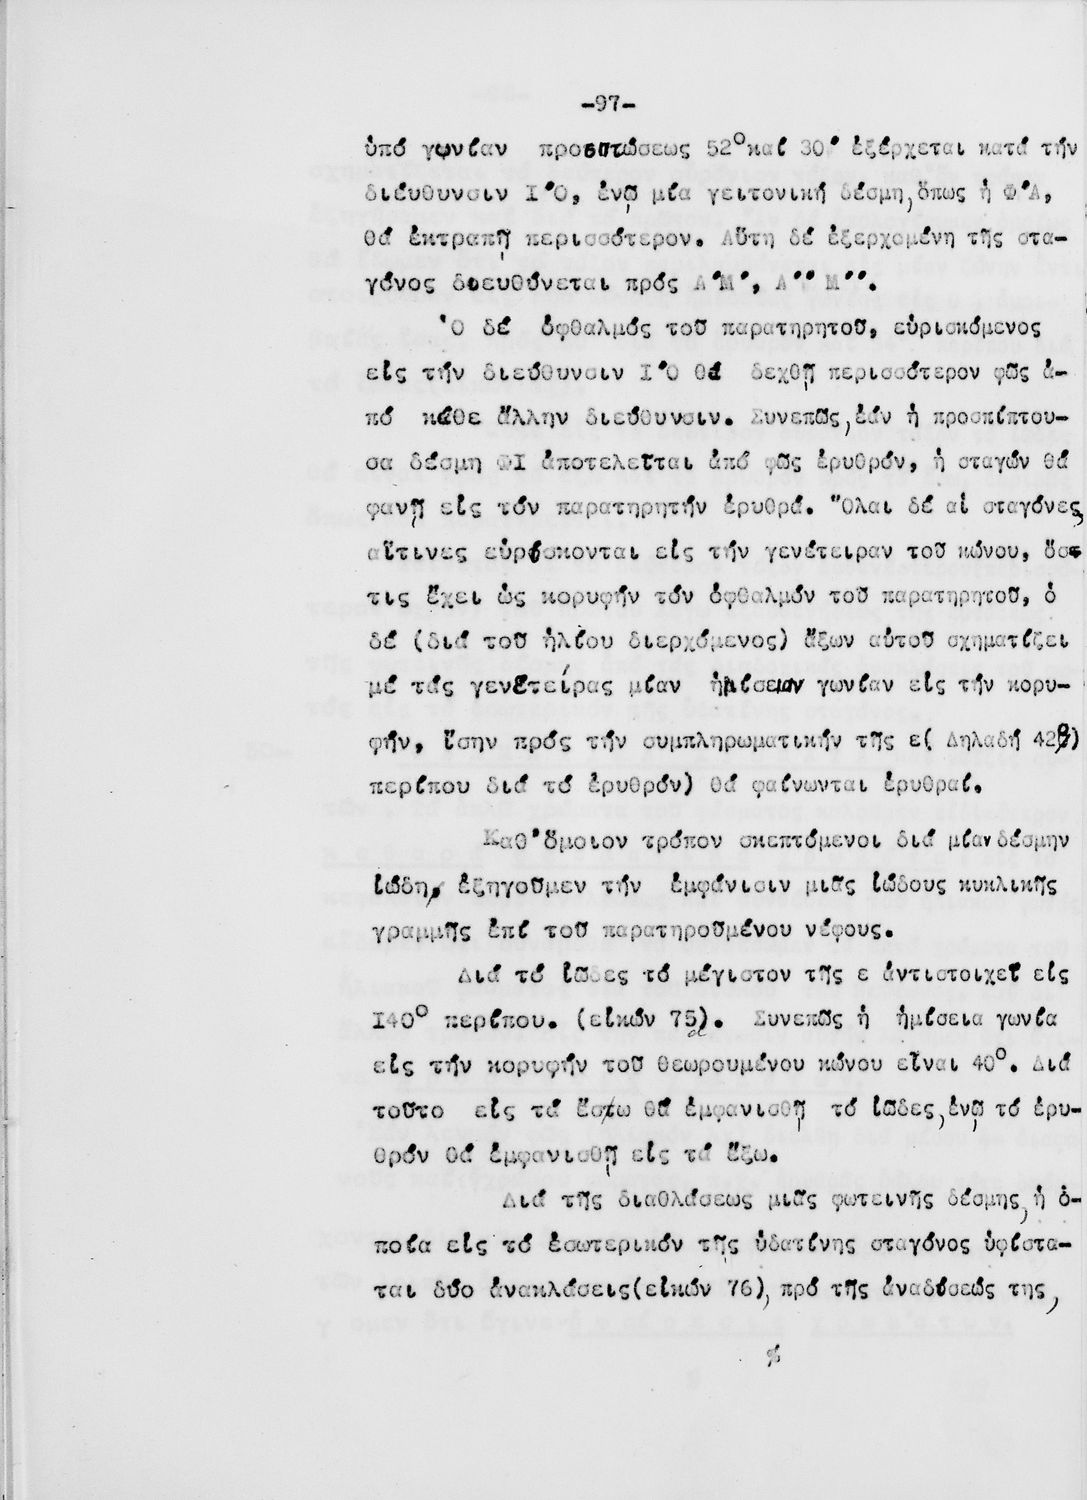 -97-
ὑπό γωνίαν προσπτώσεως 52° καί 30' ἐξέρχεται κατά τήν
διεύθυνσιν Ι'Ο, ἐνῷ μία γειτονική δέσμη, ὅπως ἡ Φ'Α,
θά ἐκτραπῇ περισσότερον. Αὕτη δέ ἐξερχομένη τῆς στα-
γόνος διευθύνεται πρός Α'Μ', Α''Μ''.
Ὁ δέ ὀφθαλμός τοῦ παρατηρητοῦ, εὑρισκόμενος
εἰς τήν διεύθυνσιν Ι'Ο θά δεχθῇ περισσότερον φῶς ἀ-
πό κάθε ἄλλην διεύθυνσιν. Συνεπῶς, ἐάν ἡ προσπίπτου-
σα δέσμη ΦΙ ἀποτελεῖται ἀπό φῶς ἐρυθρόν, ἡ σταγών θά
φανῇ εἰς τόν παρατηρητήν ἐρυθρά. Ὅλαι δέ αἱ σταγόνες,
αἵτινες εὑρίσκονται εἰς τήν γενέτειραν τοῦ κώνου, ὅσ-
τις ἔχει ὡς κορυφήν τόν ὀφθαλμόν τοῦ παρατηρητοῦ, ὁ
δέ (διά τοῦ ἡλίου διερχόμενος) ἄξων αὐτοῦ σχηματίζει
μέ τάς γενετείρας μίαν ἡμίσειαν γωνίαν εἰς τήν κορυ-
φήν, ἴσην πρός τήν συμπληρωματικήν τῆς ε( Δηλαδή 42°)
περίπου διά τό ἐρυθρόν) θά φαίνωνται ἐρυθραί.
Καθ'ὅμοιον τρόπον σκεπτόμενοι διά μίαν δέσμην
ἰώδη, ἐξηγοῦμεν τήν ἐμφάνισιν μιᾶς ἰώδους κυκλικῆς
γραμμῆς ἐπί τοῦ παρατηρουμένου νέφους.
Διά τό ἰῶδες τό μέγιστον τῆς ε ἀντιστοιχεῖ εἰς
140° περίπου. (εἰκών 75). Συνεπῶς ἡ ἡμίσεια γωνία
εἰς τήν κορυφήν τοῦ θεωρουμένου κώνου εἶναι 40°. Διά
τοῦτο εἰς τά ἔσω θά ἐμφανισθῇ τό ἰῶδες, ἐνῷ τό ἐρυ-
θρόν θά ἐμφανισθῇ εἰς τά ἔξω.
Διά τῆς διαθλάσεως μιᾶς φωτεινῆς δέσμης, ἡ ὁ-
ποία εἰς τό ἐσωτερικόν τῆς ὑδατίνης σταγόνος ὑφίστα-
ται δύο ἀνακλάσεις(εἰκών 76), πρό τῆς ἀναδύσεώς της,